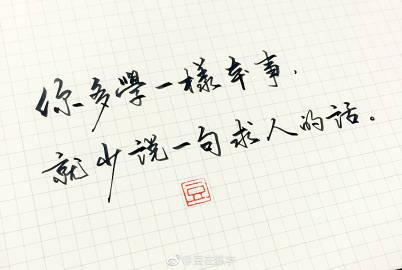 你多學一樣本事，
就少說一句求人的話。
豆